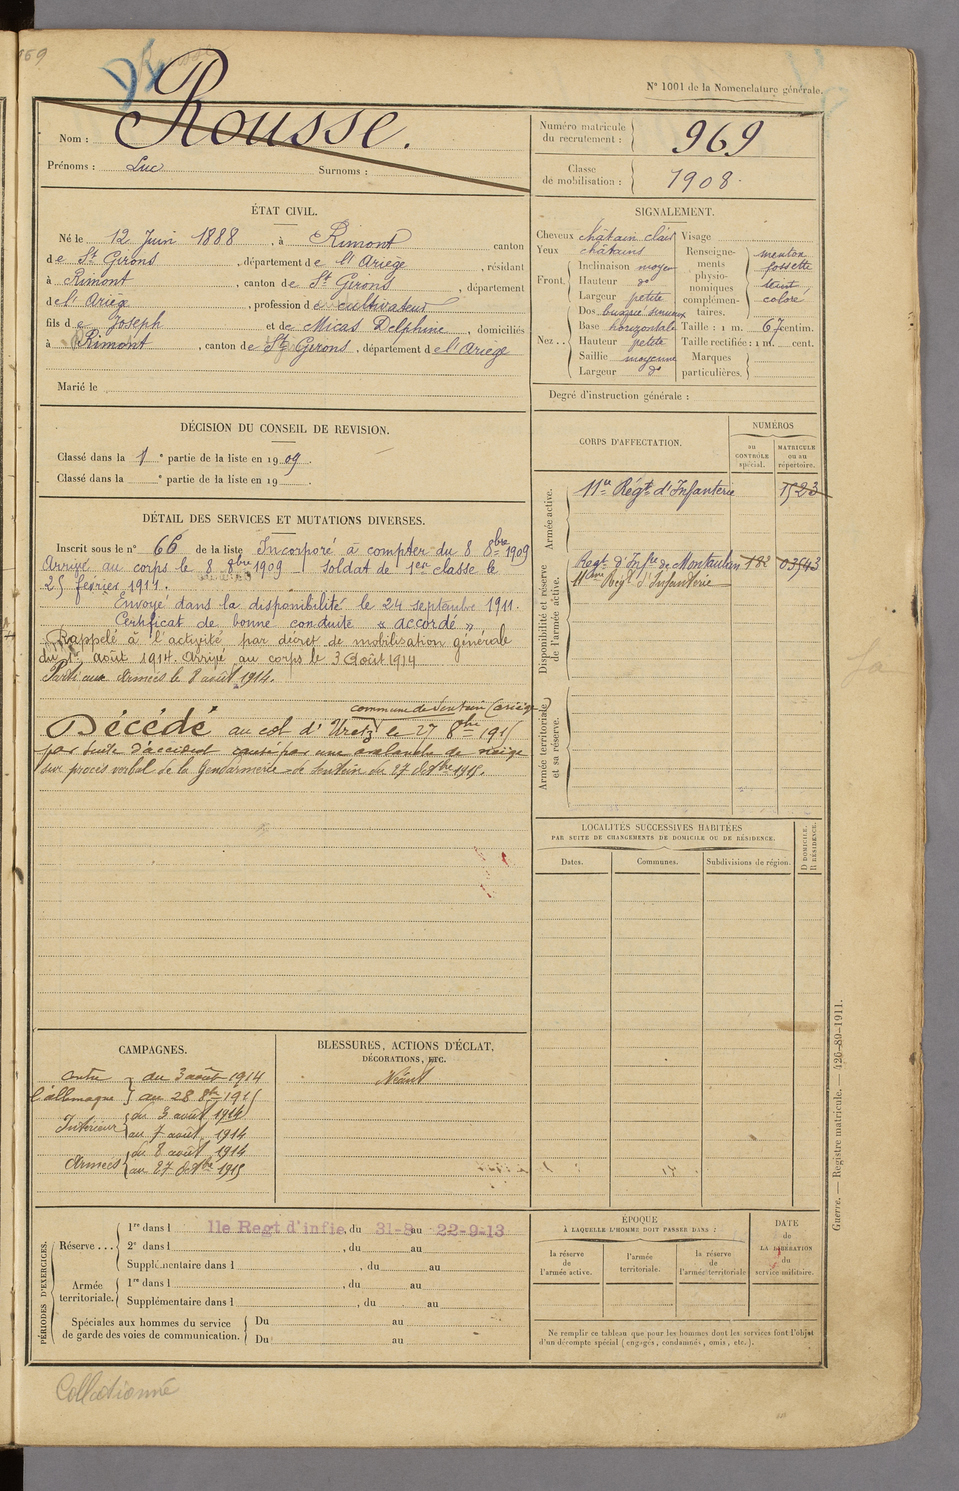 969
N° 1001 de la Nomenclature générale.
Nom : Rousse.
Prénoms : Luc Surnoms :
Numéro matricule du recrutement : 969
Classe de mobilisation : 1908.
ÉTAT CIVIL.
Né le 12 Juin 1888, à Rimont canton
de St Girons, département de l'Ariège, résidant
à Rimont, canton de St Girons, département
de l'Ariège, profession de cultivateur
fils de Joseph et de Micas Delphine, domiciliés
à Rimont, canton de St Girons, département de l'Ariège
Marié le
SIGNALEMENT.
Cheveux châtain clair
Yeux châtains
Front Inclinaison moyen
Hauteur do
Largeur petite
Nez Dos busqué sinueux
Base horizontale
Hauteur petite
Saillie moyenne
Largeur do
Visage
Renseignements physionomiques complémentaires. menton fossette teint coloré
Taille : 1 m. 67 centim.
Taille rectifiée : 1 m. cent.
Marques particulières.
Degré d'instruction générale :
DÉCISION DU CONSEIL DE REVISION.
Classé dans la 1e partie de la liste en 1909.
Classé dans la e partie de la liste en 19
CORPS D'AFFECTATION.
NUMÉROS
au CONTRÔLE spécial.
MATRICULE ou au répertoire.
Armée active.
11e Régt d'Infanterie 1523
Disponibilité et réserve de l'armée active.
Regt d'Infie de Montauban 182 03543
11ème Regt d'Infanterie
Armée territoriale et sa réserve.
DÉTAIL DES SERVICES ET MUTATIONS DIVERSES.
Inscrit sous le n° 66 de la liste Incorporé à compter du 8 8bre 1909
Arrivé au corps le 8 8bre 1909 Soldat de 1ère classe le
25 février 1911.
Envoyé dans la disponibilité le 24 septembre 1911.
Certificat de bonne conduite « accordé »
Rappelé à l'activité par décret de mobilisation générale
du 1er août 1914. Arrivé au corps le 3 Août 1914
Parti aux Armées le 8 août 1914.
commune de Sentein (ariège)
Décédé au col d'Uretz le 27 8bre 1915
par suite d'accident causé par une avalanche de neige
sur procès verbal de la Gendarmerie de Sentein du 27 octbre 1915.
LOCALITÉS SUCCESSIVES HABITÉES
PAR SUITE DE CHANGEMENTS DE DOMICILE OU DE RÉSIDENCE.
Dates. Communes. Subdivisions de région.
D DOMICILE. R RÉSIDENCE.
CAMPAGNES.
contre l'allemagne du 3 août 1914
au 28 8bre 1915
Intérieur du 3 août 1914
au 7 août 1914
Armées du 8 août 1914
au 27 octbre 1915
BLESSURES, ACTIONS D'ÉCLAT,
DÉCORATIONS, ETC.
Néant
PÉRIODES D'EXERCICES.
Réserve... 1re dans l 11e Regt d'infie, du 31-8 au 22-9-13
2e dans l , du au
Supplémentaire dans l , du au
Armée territoriale. 1re dans l , du au
Supplémentaire dans l , du au
Spéciales aux hommes du service de garde des voies de communication. Du au
Du au
ÉPOQUE
À LAQUELLE L'HOMME DOIT PASSER DANS :
la réserve de l'armée active.
l'armée territoriale.
la réserve de l'armée territoriale
DATE de LA LIBÉRATION du service militaire.
Ne remplir ce tableau que pour les hommes dont les services font l'objet
d'un décompte spécial (engagés, condamnés, omis, etc.).
Guerre. — Registre matricule. — 426-89-1911.
Collectionné